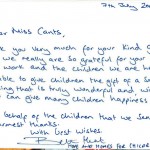 7th July 20
ear Miss Cants,
k you very much for your kind g
we really are so grateful for your
work and the children we are
able to give the gift of a s
thing that is truly wonderful and wi
can give many children happiness
behalf of the children that we ser
armest thanks.
With best wishes.
HOPE AND HOMES FOR CHILDRE